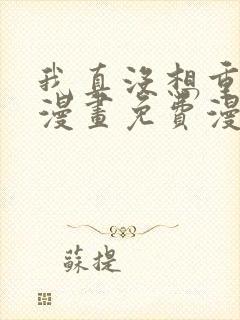 我真没想重
漫畫免費漫
蘇提